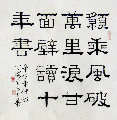 願乘風破
萬里浪甘
面壁讀十
年書